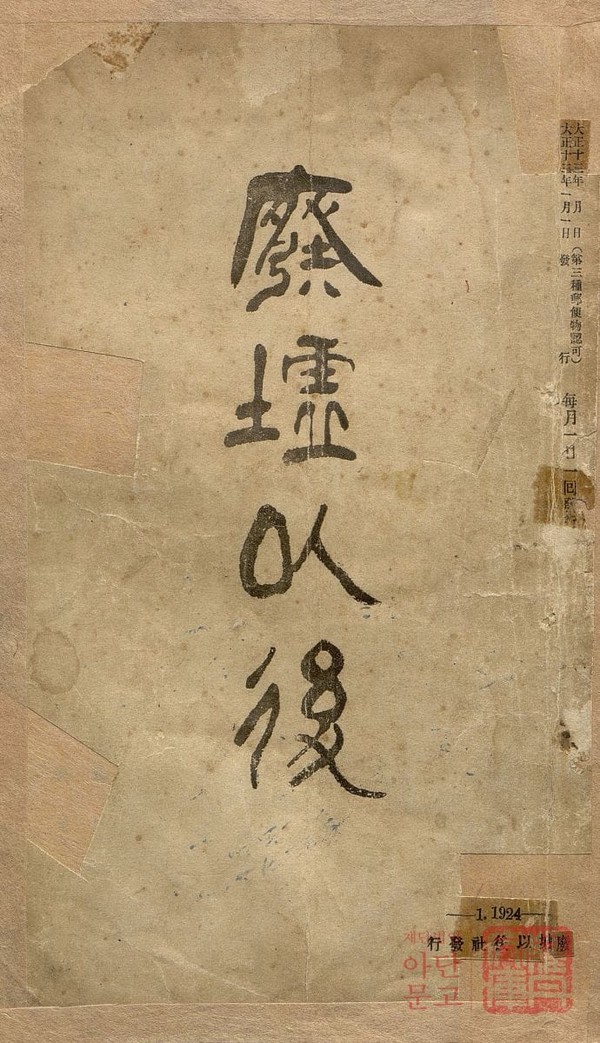 大正十三年 月 日(第三種郵便物認可)
大正十三年一月一日 發 行
每月一日一回發行
廢墟以後
—1.1924—
廢墟以後社發行
재단법인
아단
문고